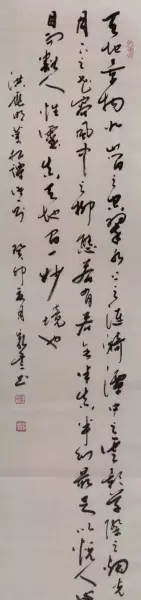 天地景物如山间之空翠水上之漣漪潭中之雲影草際之烟光
月下之花容風中之柳態若有若无半真半幻最足以悦人心
目而豁人性靈真天地间一妙境也
洪應明菜根譚一則 癸卯五月 書